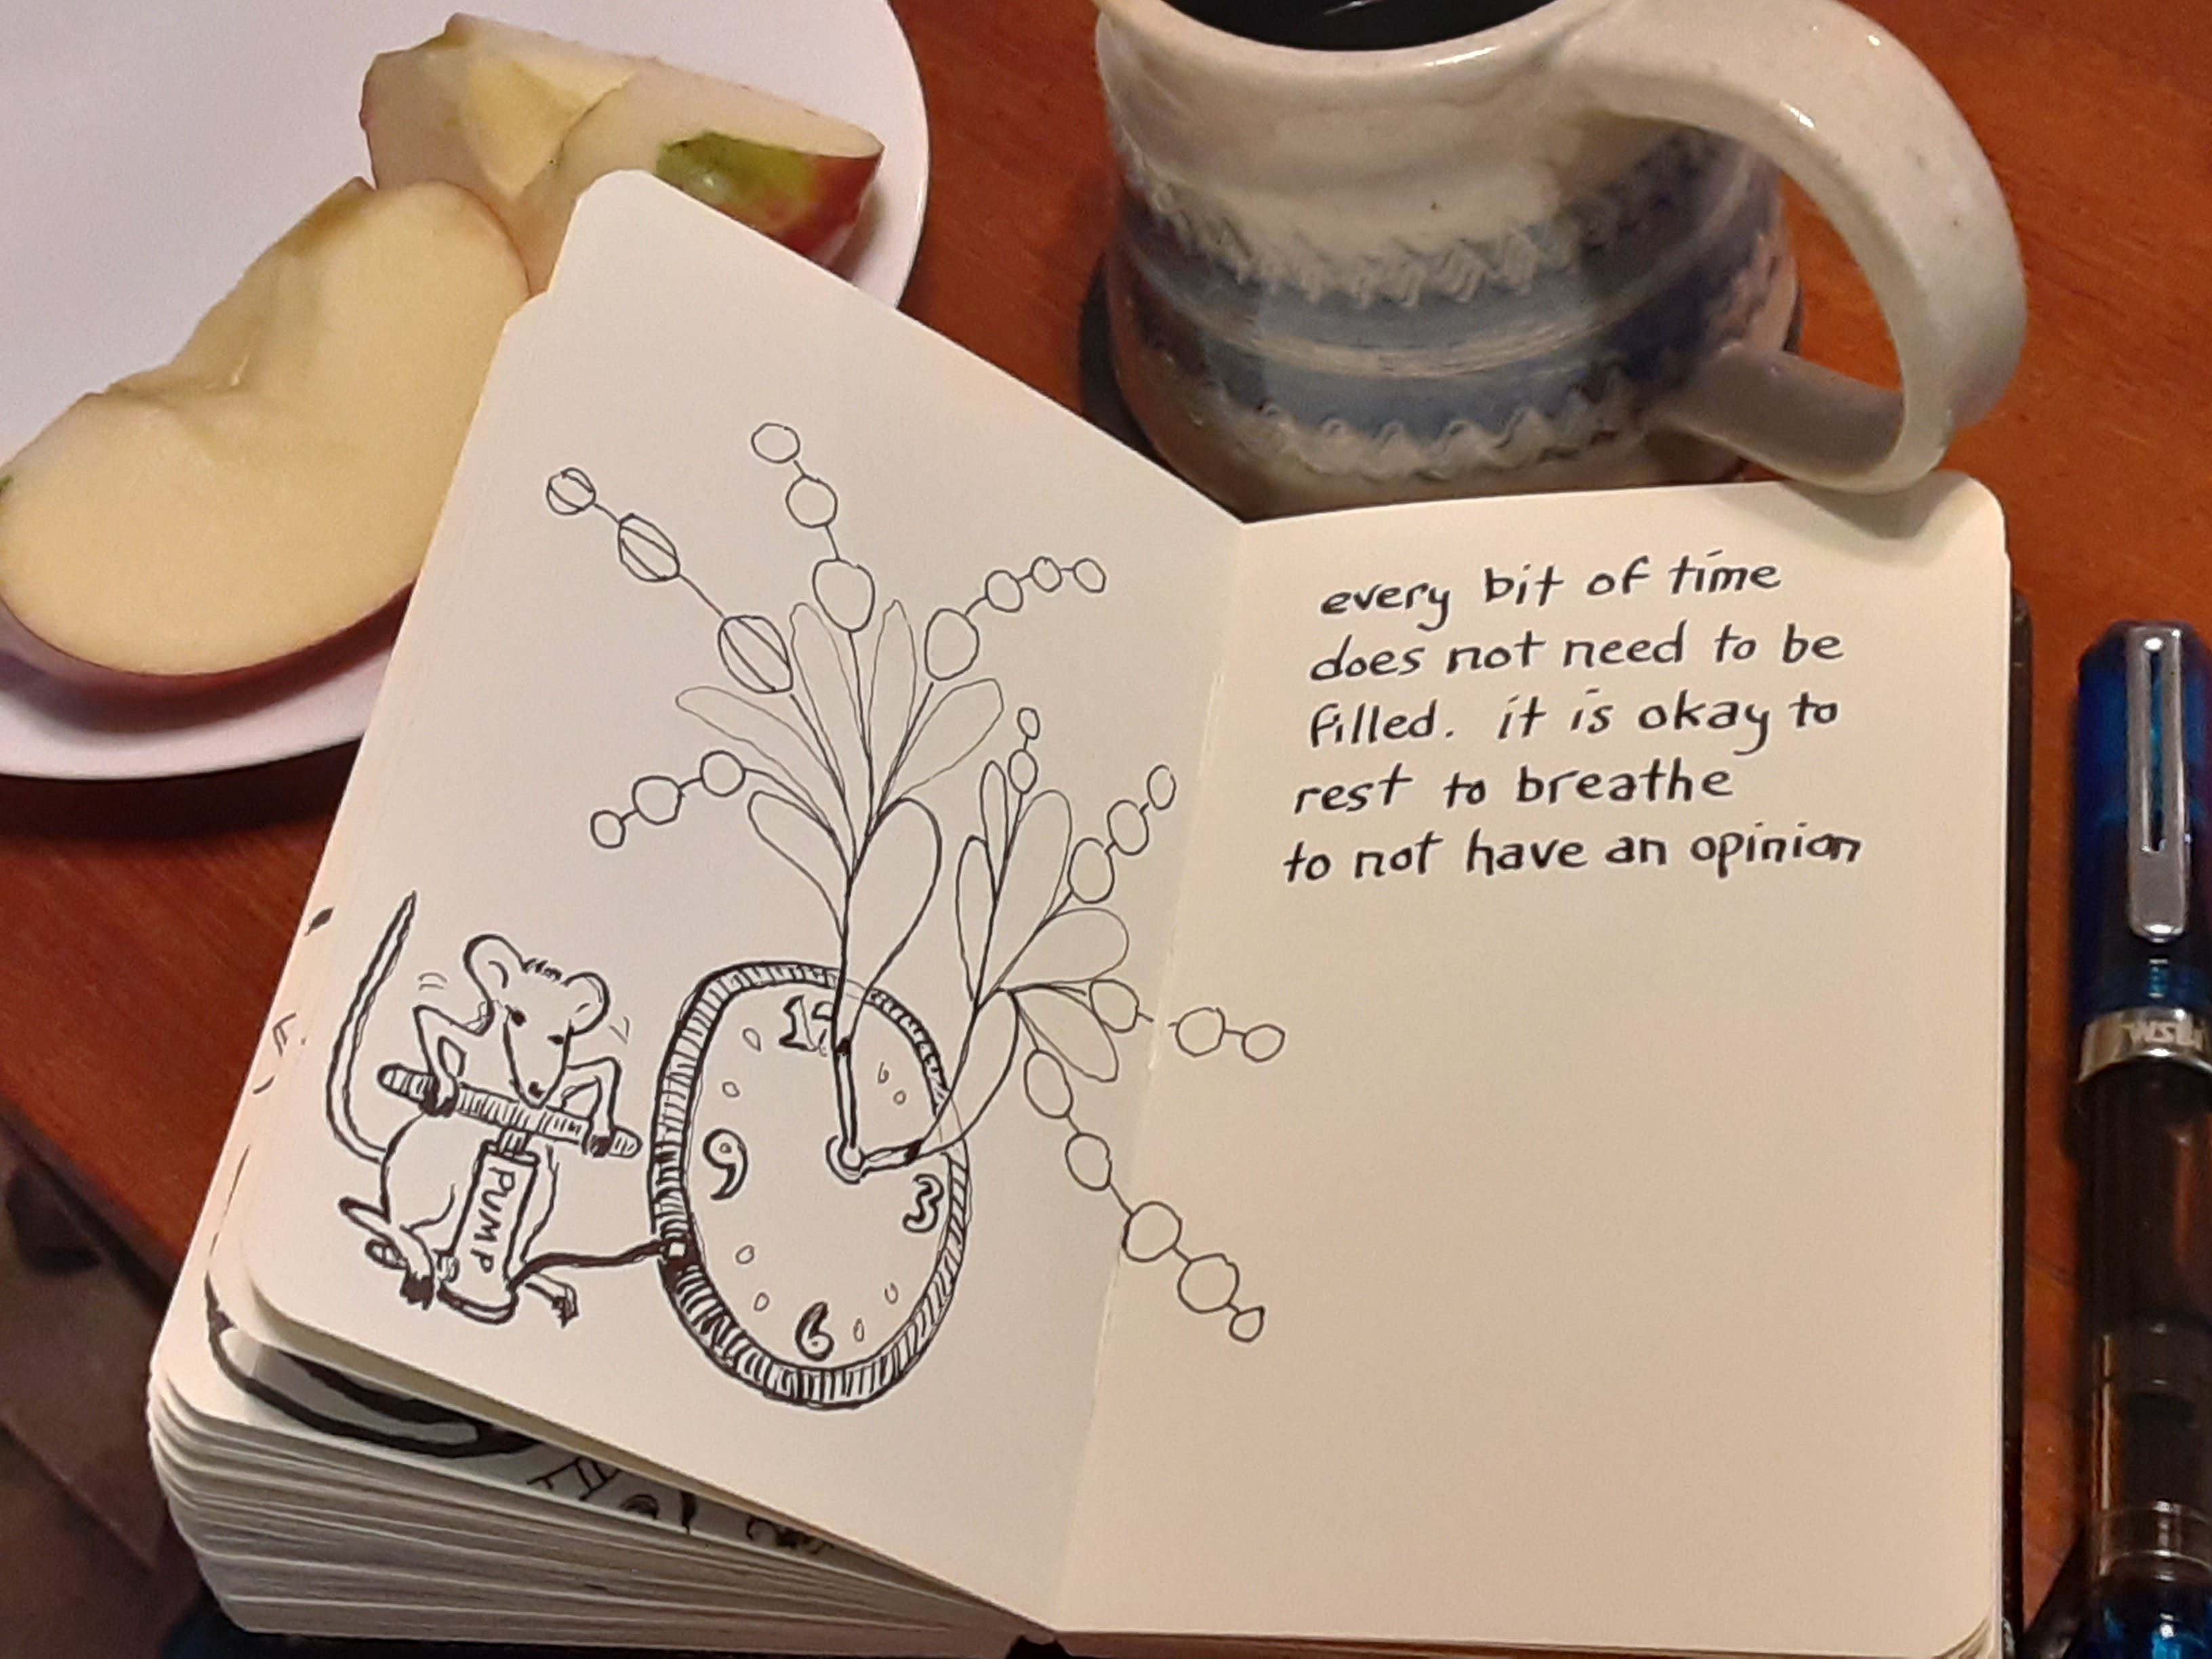 every bit of time
does not need to be
filled. it is okay to
rest to breathe
to not have an opinion
12
9
3
6
PUMP